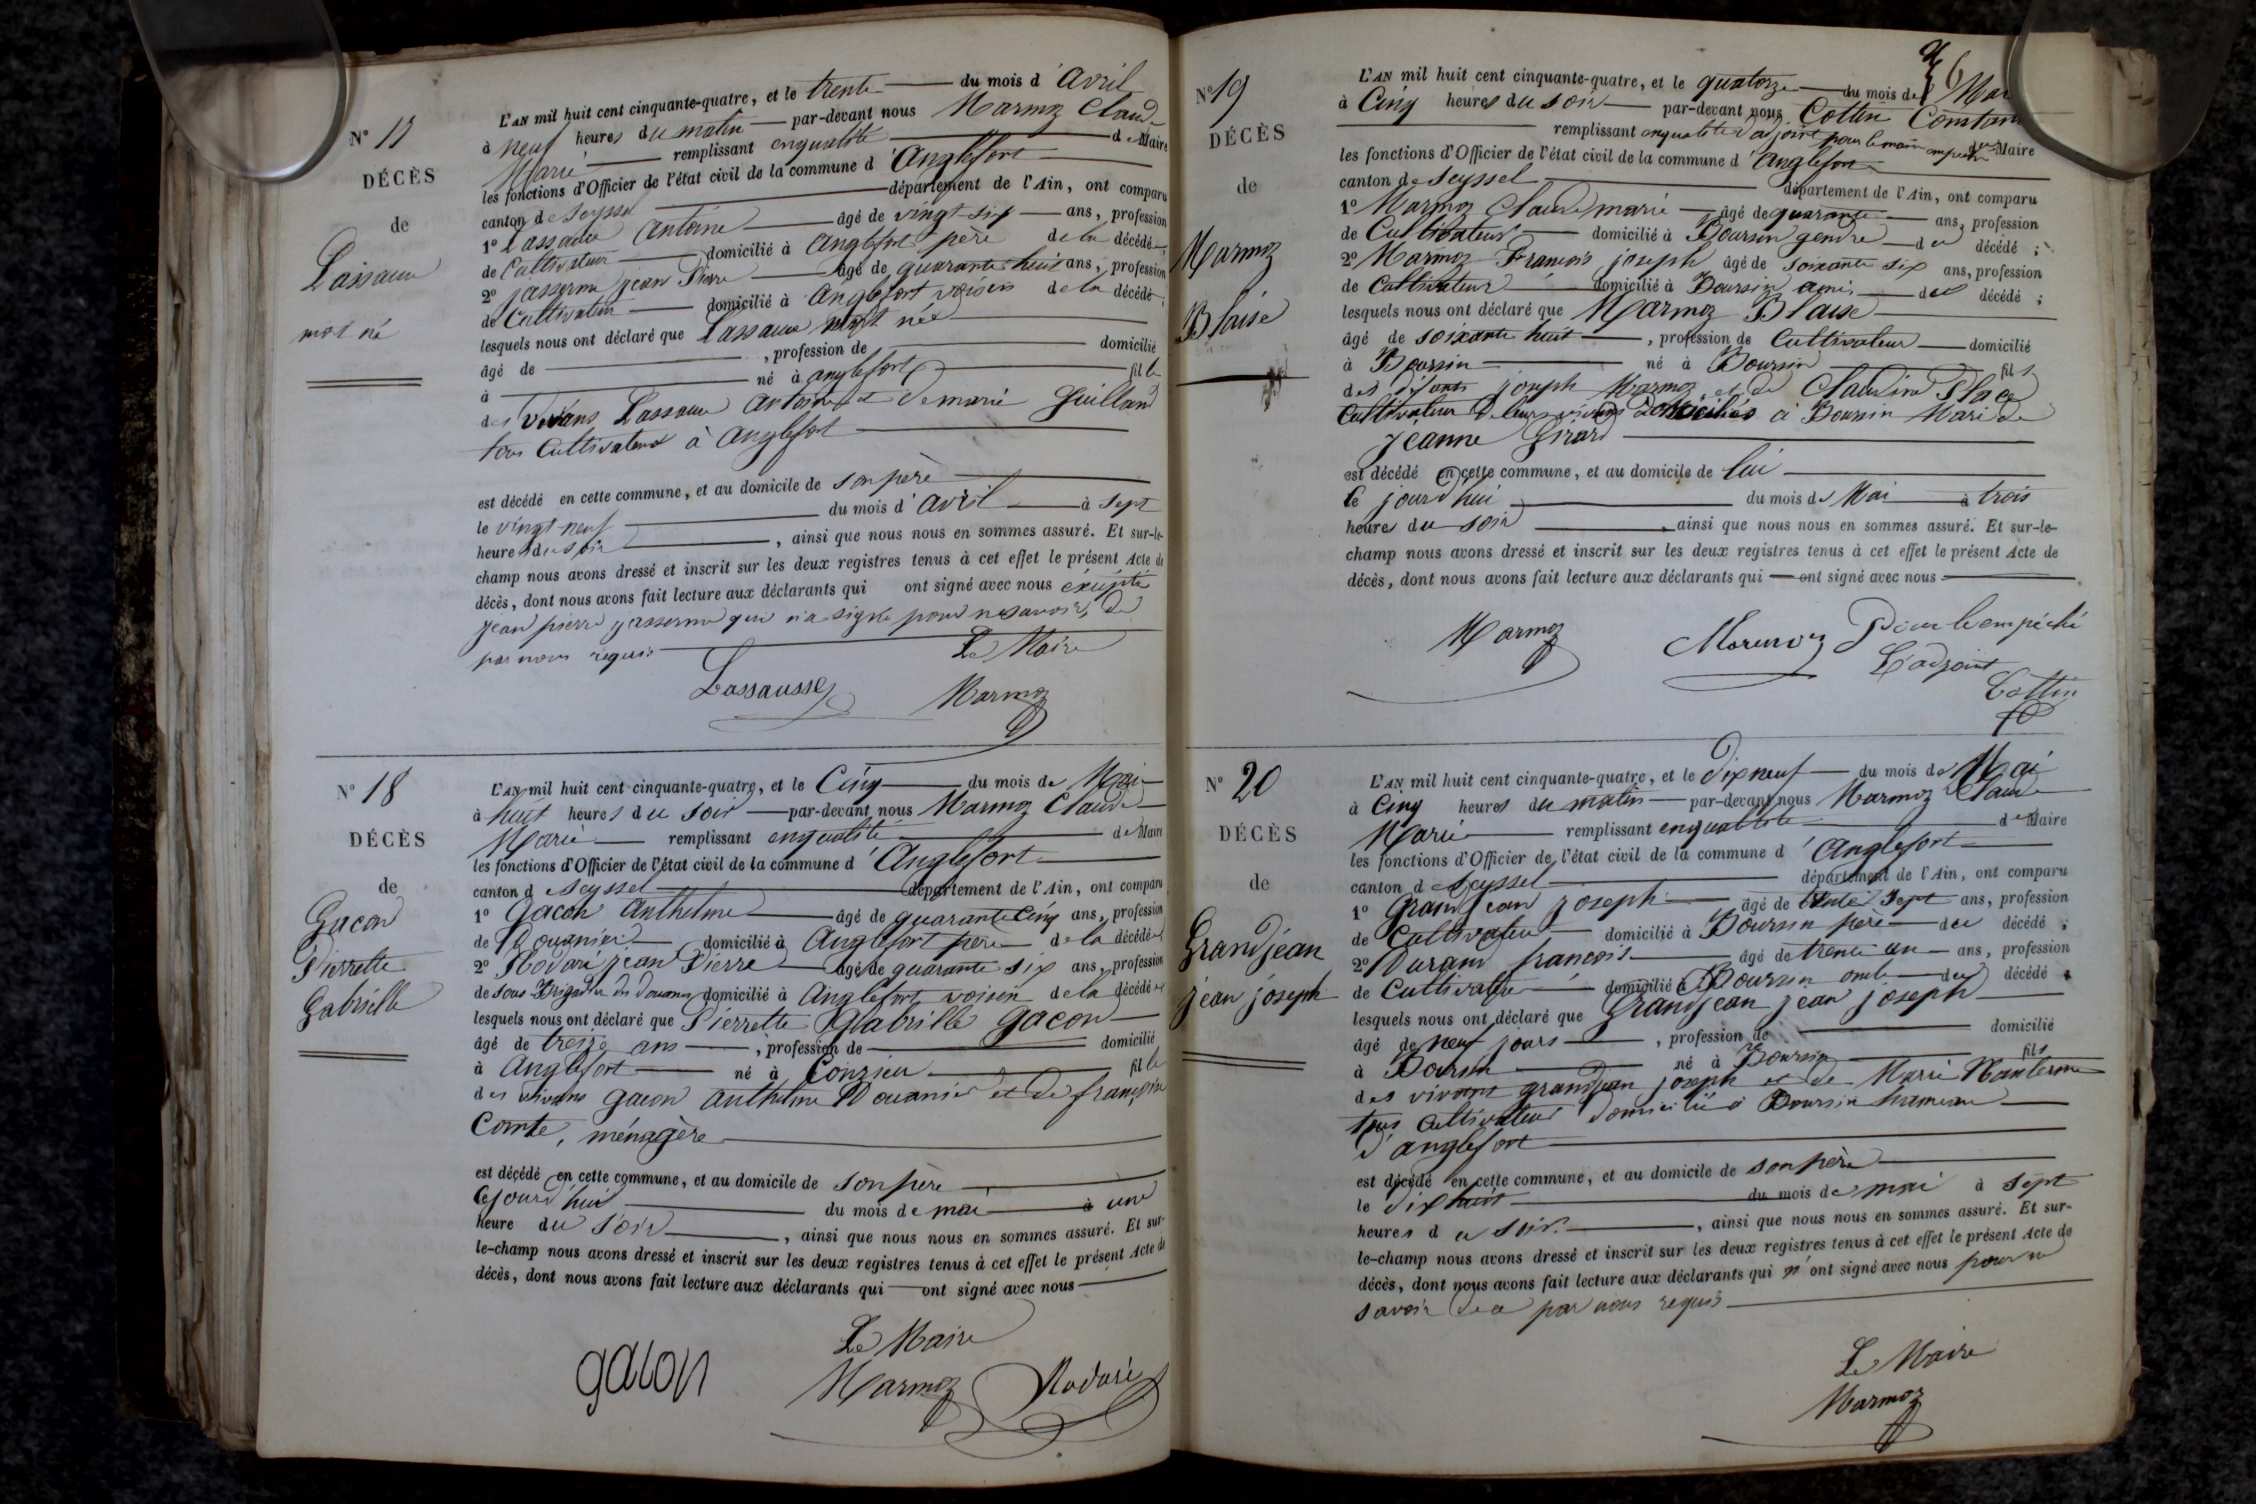 N° 17
DÉCÈS
de
Lassausse
mort né
L'AN mil huit cent cinquante-quatre, et le trente du mois d'Avril
à neuf heures du matin par-devant nous Marmoz Claude
Marie remplissant enqualité de Maire
les fonctions d'Officier de l'état civil de la commune d'Anglefort
canton de Seyssel département de l'Ain, ont comparu
1° Lassausse Antoine âgé de vingt six ans, profession
de Cultivateur domicilié à Anglefort père de la décédée,
2° jasserme jean Pierre âgé de quarante huit ans, profession
de Cultivateur domicilié à Anglefort voisin de la décédée ;
lesquels nous ont déclaré que Lassausse mort née
âgé de , profession de domicilié
à né à anglefort fille
des vivans Lassausse Antoine et de marie Guilland
tous Cultivateurs à Anglefort
est décédé en cette commune, et au domicile de son père
le vingt neuf du mois d'avril à sept
heures du soir , ainsi que nous nous en sommes assuré. Et sur-le-
champ nous avons dressé et inscrit sur les deux registres tenus à cet effet le présent Acte de
décès, dont nous avons fait lecture aux déclarants qui ont signé avec nous éxcepté
jean pierre jasserme qui n'a signé pour ne savoir, de
par nous requis
Le Maire
Lassausse Marmoz
N° 18
DÉCÈS
de
Gacon
Pierrette
Gabrielle
L'AN mil huit cent cinquante-quatre, et le Cinq du mois de Mai
à huit heures du soir par-devant nous Marmoz Claude
Marie remplissant enqualité de Maire
les fonctions d'Officier de l'état civil de la commune d'Anglefort
canton d Seyssel département de l'Ain, ont comparu
1° Gacon Anthelme âgé de quarante Cinq ans, profession
de Douanier domicilié à Anglefort père de la décédée
2° Rodari jean Pierre âgé de quarante six ans, profession
de sous Brigadier des douanes domicilié à Anglefort voisin de la décédée
lesquels nous ont déclaré que Pierrette Gabrielle Gacon
âgé de treize ans , profession de domicilié
à Anglefort né à Conzieu fille
des vivans gacon anthelme Douanier et de françoise
Comte, ménagère
est décédé en cette commune, et au domicile de son père
Cejourd'hui du mois de mai à une
heure du soir , ainsi que nous nous en sommes assuré. Et sur-
le-champ nous avons dressé et inscrit sur les deux registres tenus à cet effet le présent Acte de
décès, dont nous avons fait lecture aux déclarants qui ont signé avec nous
Le Maire
gacon Marmoz Rodari
6
N° 19
DÉCÈS
de
Marmoz
Blaise
L'AN mil huit cent cinquante-quatre, et le quatorze du mois de Mai
à Cinq heures du soir par-devant nous Cottin Constant
remplissant enqualité d'adjoint pour le maire empeché du Maire
les fonctions d'Officier de l'état civil de la commune d'Anglefort
canton de Seyssel département de l'Ain, ont comparu
1° Marmoz Claude marie âgé de quarante ans, profession
de Cultivateur domicilié à Boursin gendre du décédé ;
2° Marmoz François joseph âgé de soixante six ans, profession
de Cultivateur domicilié à Boursin ami du décédé ;
lesquels nous ont déclaré que Marmoz Blaise
âgé de soixante huit , profession de Cultivateur domicilié
à Boursin né à Boursin fils
des joseph Marmoz et de Claudine Place
Cultivateur de leurs vivans domiciliés à Boursin Mari de
jeanne Girard
est décédé en cette commune, et au domicile de lui
Ce jourd'hui du mois de Mai à trois
heures du soir , ainsi que nous nous en sommes assuré. Et sur-le-
champ nous avons dressé et inscrit sur les deux registres tenus à cet effet le présent Acte de
décès, dont nous avons fait lecture aux déclarants qui ont signé avec nous
Marmoz Pour le empéché
L'adjoint
Cottin
N° 20
DÉCÈS
de
Grandjean
jean joseph
L'AN mil huit cent cinquante-quatre, et le dix neuf du mois de Mai
à Cinq heures du matin par-devant nous Marmoz Claude
Marie remplissant enqualité de Maire
les fonctions d'Officier de l'état civil de la commune d'Anglefort
canton d Seyssel département de l'Ain, ont comparu
1° Grandjean joseph âgé de trente sept ans, profession
de Cultivateur domicilié à Boursin père du décédé ;
2° Durand françois âgé de trente un ans, profession
de Cultivateur domicilié à Boursin oncle du décédé ;
lesquels nous ont déclaré que Grandjean jean joseph
âgé de neuf jours , profession de domicilié
à Boursin né à Boursin fils
des vivans grandjean joseph et de Marie
tous Cultivateurs domicilié à Boursin hameau
d'anglefort
est décédé en cette commune, et au domicile de son père
le dix huit du mois de mai à sept
heures du soir , ainsi que nous nous en sommes assuré. Et sur-
le-champ nous avons dressé et inscrit sur les deux registres tenus à cet effet le présent Acte de
décès, dont nous avons fait lecture aux déclarants qui n'ont signé avec nous pour ne
savoir de ce par nous requis
Le Maire
Marmoz